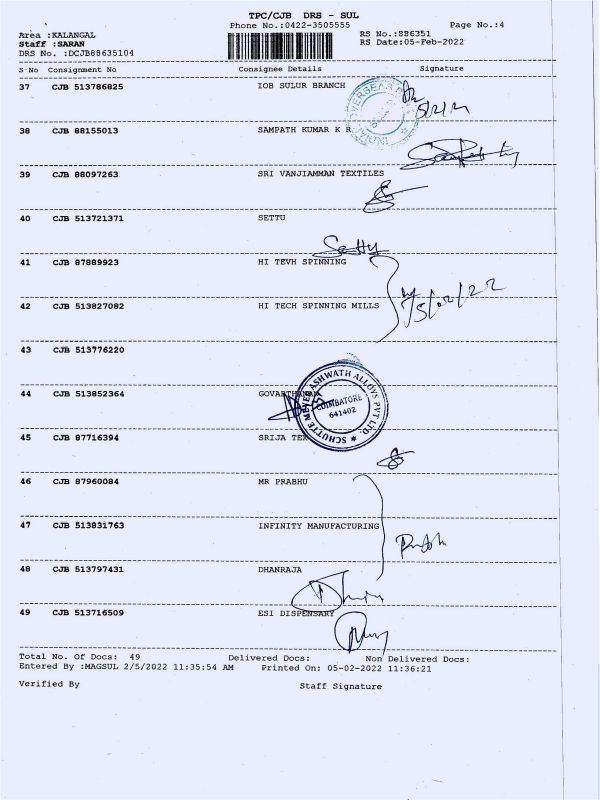 TPC/CJB DRS - SUL
Phone No.:0422-3505555 Page No.:4
Area :KALANGAL RS No.:886351
Staff :SARAN RS Date:05-Feb-2022
DRS No. :DCJB88635104
S-No Consignment No Consignee Details Signature
37 CJB 513786825 IOB SULUR BRANCH
5/2/22
38 CJB 88155013 SAMPATH KUMAR K R
39 CJB 88097263 SRI VANJIAMMAN TEXTILES
40 CJB 513721371 SETTU
Settu
41 CJB 87889923 HI TEVH SPINNING
5/02/22
42 CJB 513827082 HI TECH SPINNING MILLS
43 CJB 513776220
SCHUTTE MEYER ASHWATH ALLOYS PVT LTD.
COIMBATORE
641402
44 CJB 513852364 GOVARTHANAN
45 CJB 87716394 SRIJA TEX
46 CJB 87960084 MR PRABHU
47 CJB 513831763 INFINITY MANUFACTURING
48 CJB 513797431 DHANRAJA
49 CJB 513716509 ESI DISPENSARY
Total No. Of Docs: 49 Delivered Docs: Non Delivered Docs:
Entered By :MAGSUL 2/5/2022 11:35:54 AM Printed On: 05-02-2022 11:36:21
Verified By Staff Signature